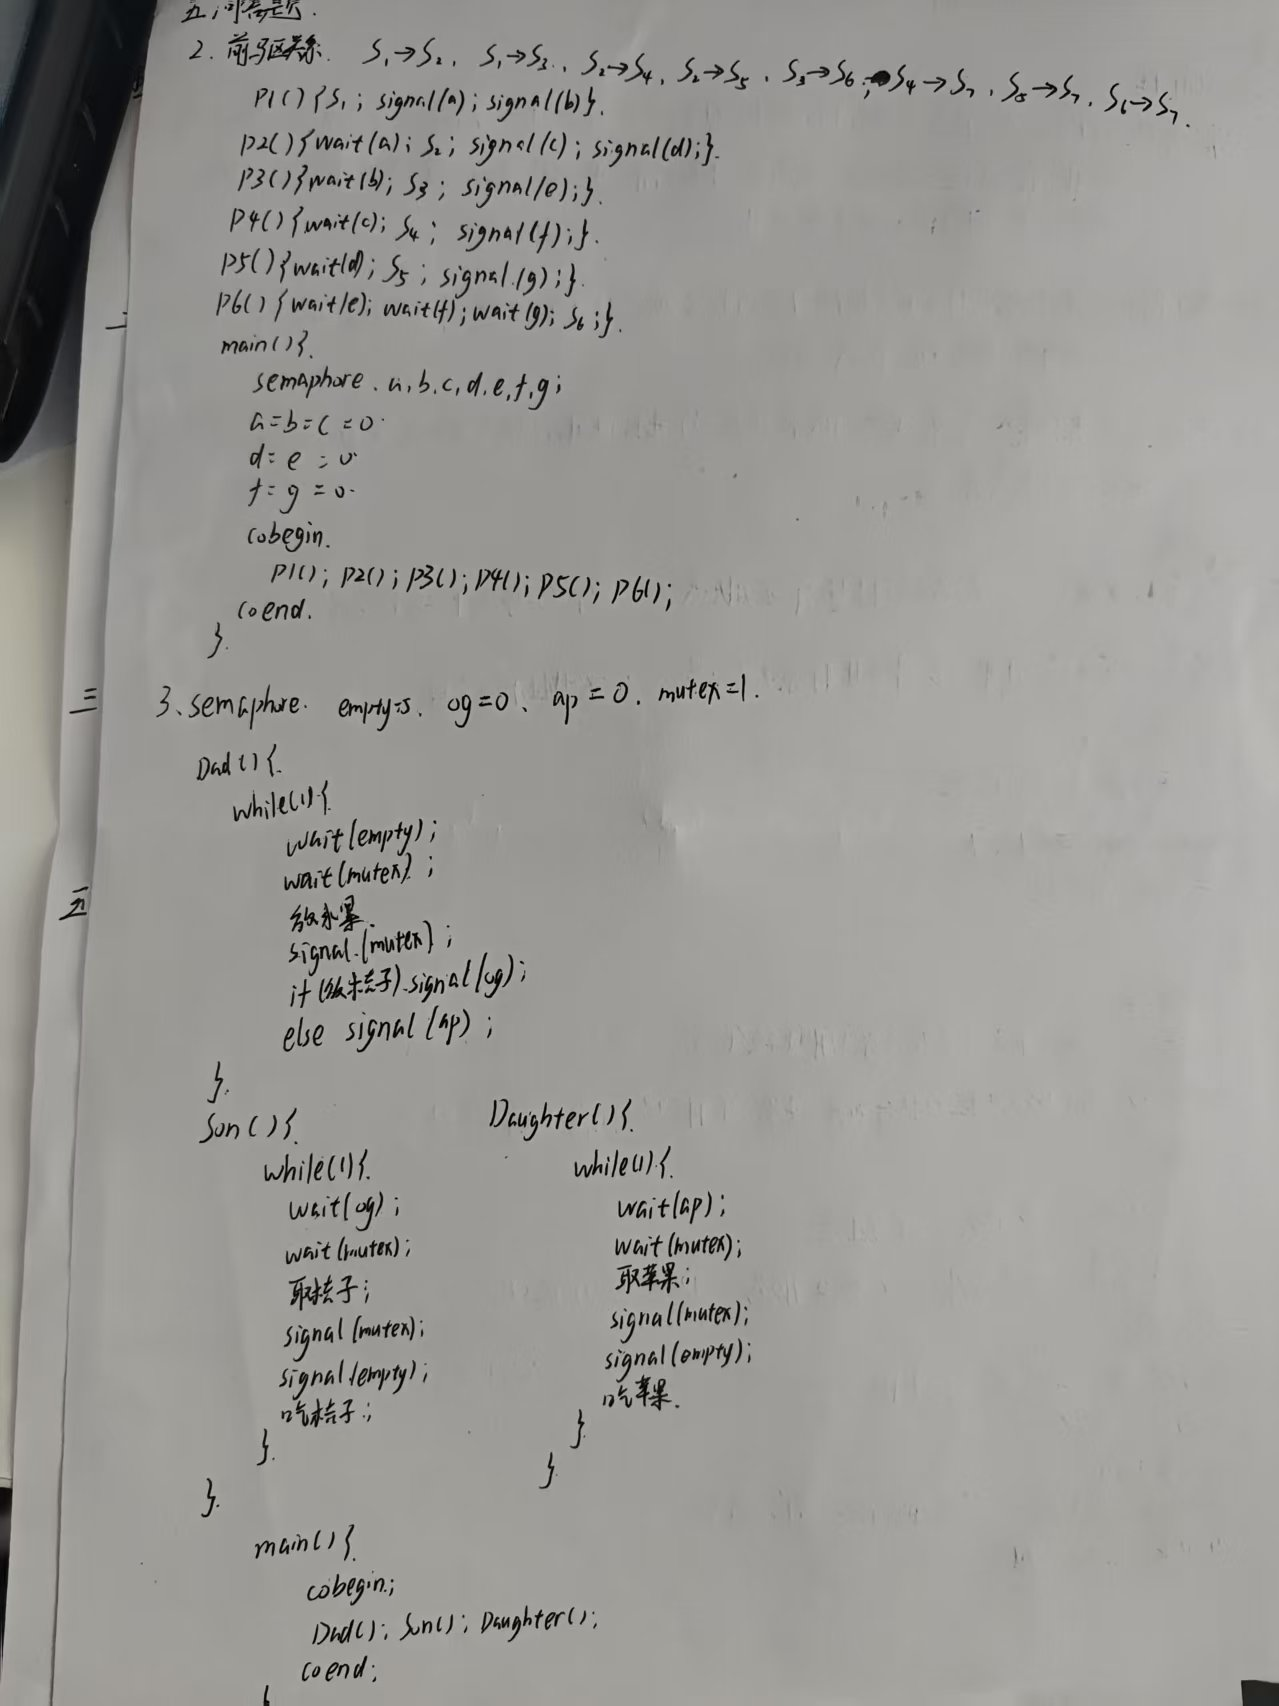 五、问答题.
2. 前驱关系. S₁→S₂, S₁→S₃, S₂→S₄, S₂→S₅, S₃→S₆, S₄→S₇, S₅→S₇, S₆→S₇.
P1(){S₁; signal(a); signal(b)}.
P2(){wait(a); S₂; signal(c); signal(d);}.
P3(){wait(b); S₃; signal(e);}.
P4(){wait(c); S₄; signal(f);}.
P5(){wait(d); S₅; signal(g);}.
P6(){wait(e); wait(f); wait(g); S₆;}.
main(){.
semaphore. a,b,c,d,e,f,g;
a=b=c=0.
d=e=0.
f=g=0.
cobegin.
P1(); P2(); P3(); P4(); P5(); P6();
coend.
}.
三
3、semaphore. empty=5. og=0、ap=0. mutex=1.
Dad(){.
while(1){.
wait(empty);
wait(mutex);
五
放水果.
signal.(mutex);
if(放桔子).signal(og);
else signal(ap);
}.
Son(){.
while(1){.
wait(og);
wait(mutex);
取桔子;
signal(mutex);
signal(empty);
吃桔子;
}.
}.
Daughter(){.
while(1){.
wait(ap);
wait(mutex);
取苹果;
signal(mutex);
signal(empty);
吃苹果.
}.
}.
main(){.
cobegin;
Dad(); Son(); Daughter();
coend;